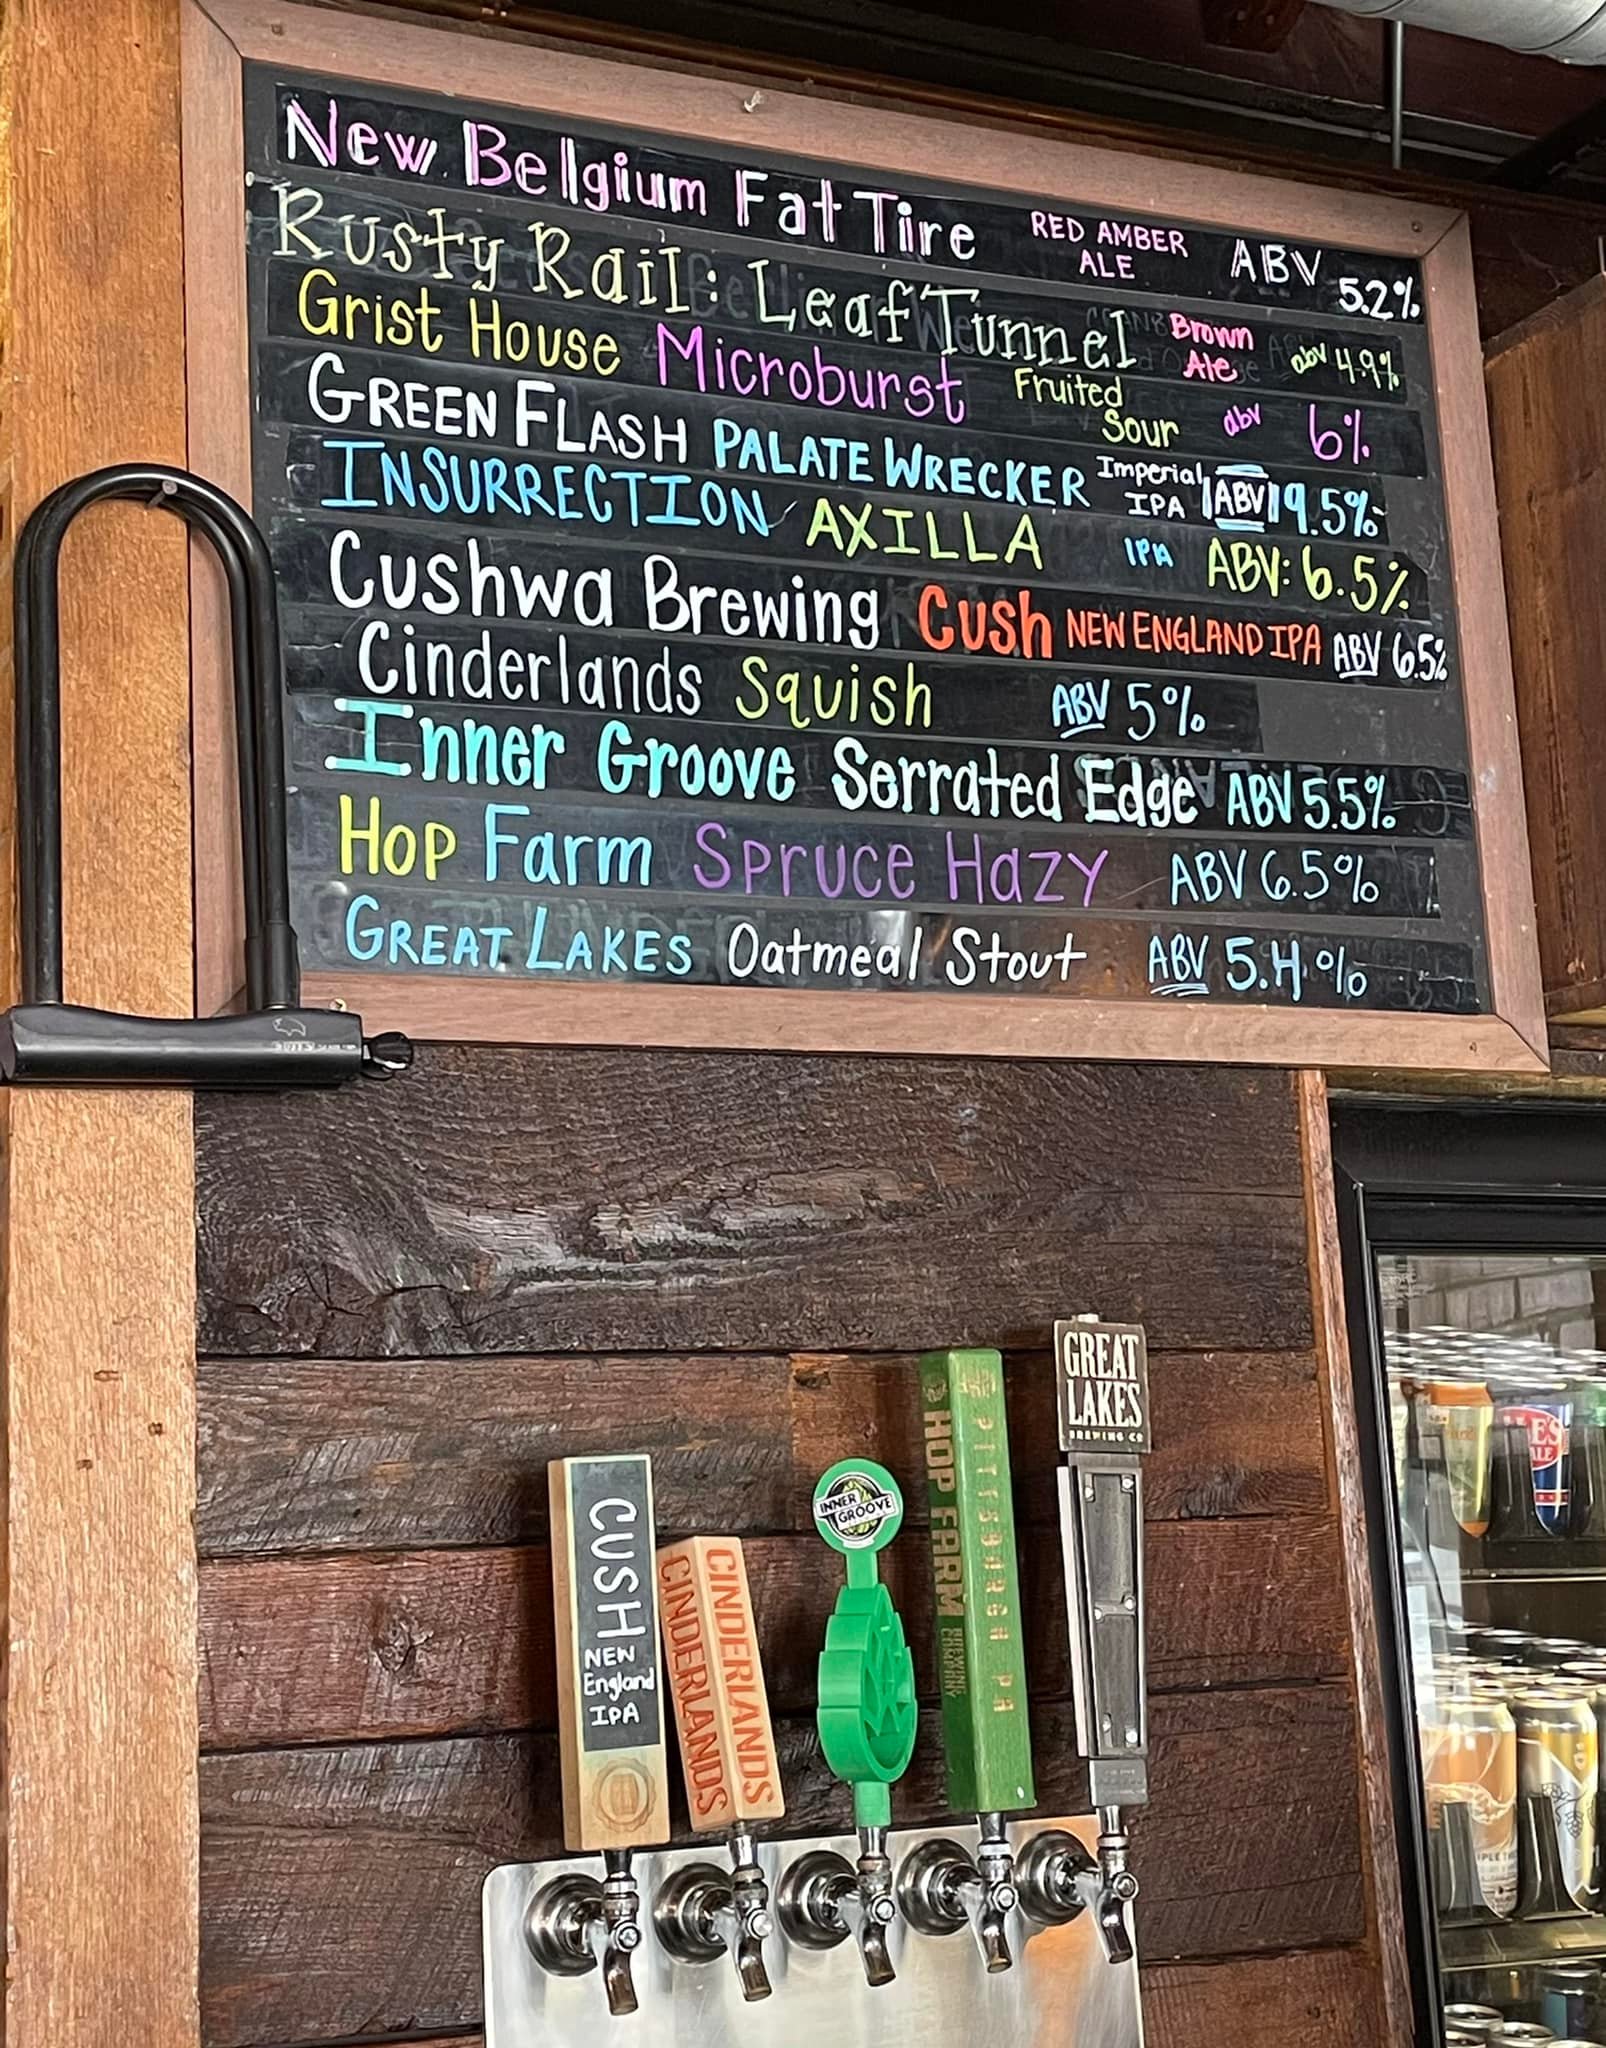 New Belgium Fat Tire RED AMBER ALE ABV 5.2%
Rusty Rail: Leaf Tunnel Brown Ale abv 4.9%
Grist House Microburst Fruited Sour abv 6%
GREEN FLASH PALATE WRECKER Imperial IPA ABV 9.5%
INSURRECTION AXILLA IPA ABV: 6.5%
Cushwa Brewing Cush NEW ENGLAND IPA ABV 6.5%
Cinderlands Squish ABV 5%
Inner Groove Serrated Edge ABV 5.5%
Hop Farm Spruce Hazy ABV 6.5%
GREAT LAKES Oatmeal Stout ABV 5.4%
GREAT
LAKES
BREWING CO
CUSH
NEW
England
IPA
CINDERLANDS
CINDERLANDS
INNER
GROOVE
HOP FARM
BREWING
COMPANY
PITTSBURGH PA